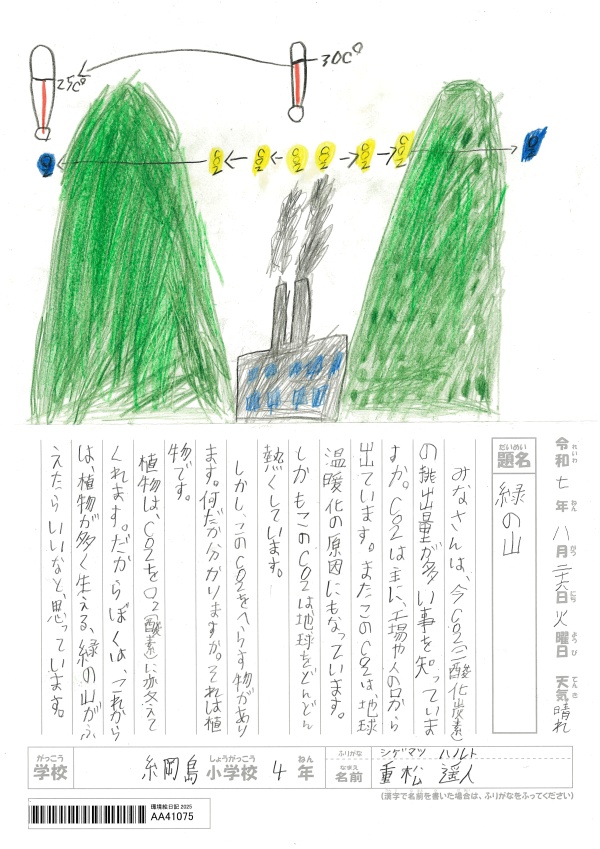 25C°
30C°
O2
CO2
CO2
CO2
CO2
CO2
CO2
O2
令和七年八月二六日火曜日 天気晴れ
れいわ ねん がつ にち ようび てんき
だいめい
題名
緑の山
みなさんは、今CO2(二酸化炭素)
の排出量が多い事を知っていま
すか。CO2は主に、工場や人の口から
出ています。またこのCO2は、地球
温暖化の原因にもなっています。
しかもこのCO2は地球をどんどん
熱くしています。
しかし、このCO2をへらす物があり
ます。何だか分かりますか。それは植
物です。
植物は、CO2をO2(酸素)に変えて
くれます。だからぼくは、これから
は、植物が多く生える、緑の山がふ
えたらいいなと、思っています。
がっこう
学校
しょうがっこう ねん
糸岡島小学校 4年
ふりがな
シゲマツ ハルト
なまえ
名前
重松 遥人
(漢字で名前を書いた場合は、ふりがなをふってください)
環境絵日記 2025
AA41075